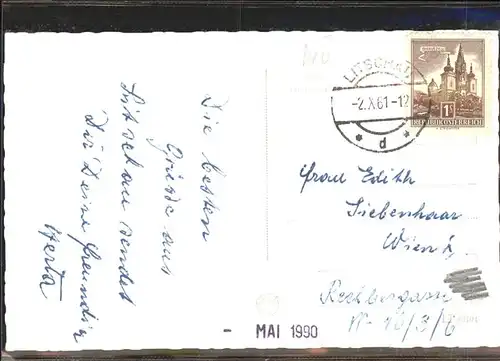 Die besten
Grüsse aus
Litschau sendet
Dir Deine Freundin
Herta
LITSCHAU
-2.X.61-12
* d *
1S
REPUBLIK ÖSTERREICH
Frau Edith
Siebenhaar
Wien
Rechbergasse
10/3/6
- MAI 1990